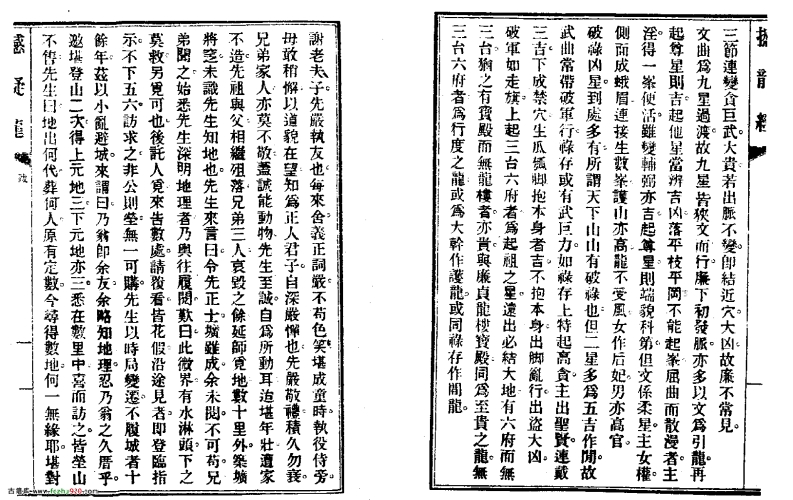 撼龍經
三節連變貪巨武大貴若出脈不變即結近穴大凶故廉不常見
文曲爲九星過渡故九星皆狹文而行廉下初發脈亦多以文爲引龍再
起尊星則吉起他星當辨吉凶落平枝平岡不能起峯屈曲而散漫者主
淫得一峯便活雖變輔弼亦吉起尊星則端貌科第但文係柔星主女權
側面成蛾眉連接生數峯護山亦高龍不受風女作后妃男亦高官
破祿凶星到處多有所謂天下山山有破祿也但二星多爲五吉作閒故
武曲常帶破軍行祿存或有武巨力如祿存上特起高貪主出聖賢連戴
三吉下成禁穴生瓜瓠脚抱本身者吉不抱本身出脚亂行出盜大凶
破軍如走旗上起三台六府者爲起祖之星遠出必結大地有六府而無
三台猶之有寶殿而無龍樓者亦貴與廉貞龍樓寶殿同爲至貴之龍無
三台六府者爲行度之龍或爲大幹作護龍或同祿存作閒龍
謝老夫子先嚴執友也每來舍義正詞嚴不苟色笑堪成童時執役侍旁
毋敢稍懈以道貌在望知爲正人君子自深嚴憚也先嚴敬禮積久勿衰
兄弟家人亦莫不敬蓋誠能動物先生至誠自爲所動耳迨堪年壯遭家
不造先祖與父相繼殂落兄弟三人哀毀之餘延師覓地數十里外築壙
將窆未識先生知地也先生來言曰令先正士壙雖成余未閱不可苟兄
弟聞之始悉先生深明地理者乃與往履閱歎曰此微界有水淋頭下之
莫救另覓可也後託人覓來告數處請後看皆花假沿途見者即登臨指
示不下五六訪求之非公則塋無一可購先生以時局變遷不履城者十
餘年茲以小亂避城來謂曰乃翁即余友余略知地理忍乃翁之久厝乎
邀堪登山二次得上元地三下元地亦三悉在數里中喜而訪之皆塋山
不售先生曰地出何代葬何人原有定數今尋得數地何一無緣耶堪對
疑龍
古書庫-www.fczhz920.com